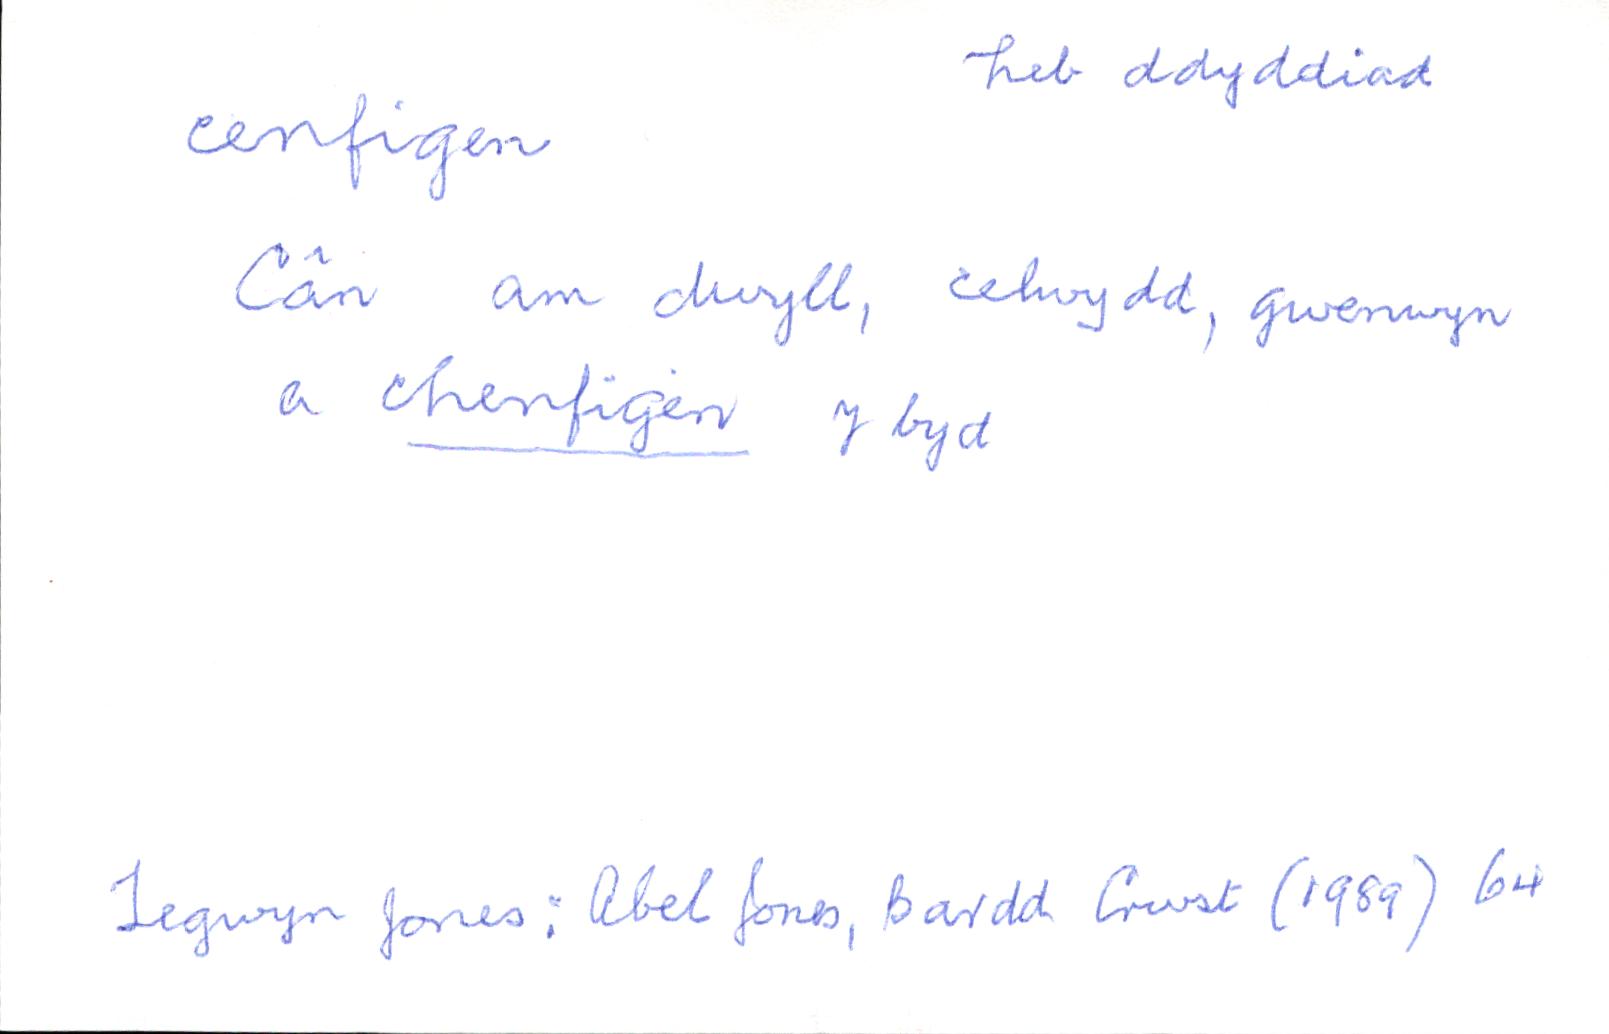 heb ddyddiad
cenfigen
Cân am dwyll, celwydd, gwenwyn
a chenfigen y byd
Tegwyn Jones: Abel Jones, Bardd Crwst (1989) 64